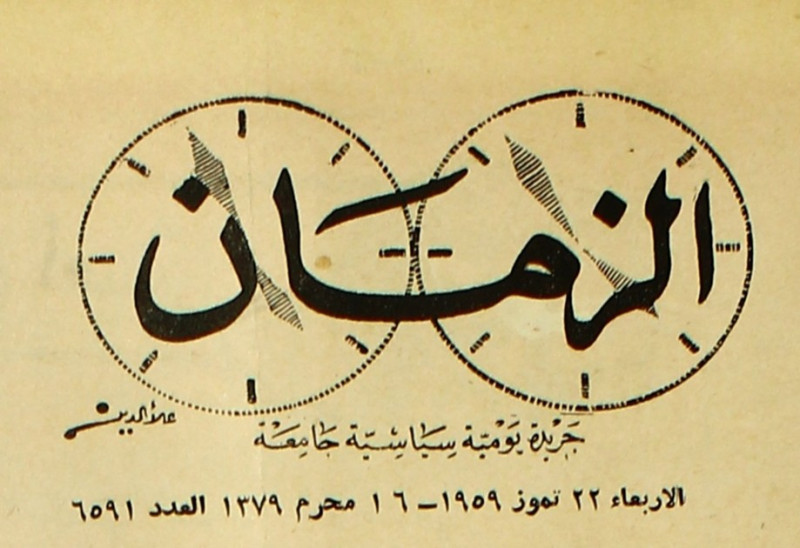 الزمان
علاء الدين
جَرْيدة يَوْميّة سِيَاسْيّة جَامِعَة
الاربعاء ٢٢ تموز ١٩٥٩ – ١٦ محرم ١٣٧٩ العدد ٦٥٩١